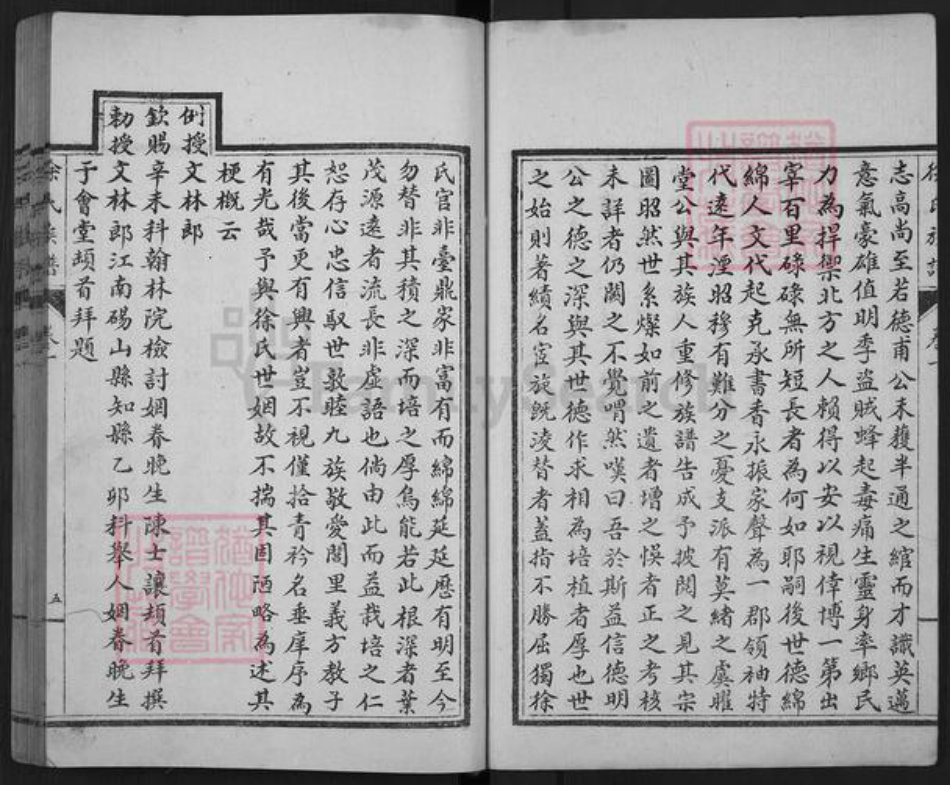 志高尚至若德甫公未獲半通之綰而才識英邁
意氣豪雄值明季盜賊蜂起毒痡生靈身率鄉民
力為捍禦北方之人賴得以安以視偉博一第出
宰百里碌碌無所短長者為何如耶嗣後世德綿
綿人文代起克承書香永振家聲為一郡領袖特
代遠年湮昭穆有難分之憂支派有莫緒之虞睢
堂公與其族人重修族譜告成予披閱之見其宗
圖昭然世系燦如前之遺者增之悞者正之考核
未詳者仍闕之不覺喟然嘆曰吾於斯益信德明
公之德之深與其世德作求相為培植者厚也世
之始則著績名宦旋既淩替者蓋指不勝屈獨徐
氏官非臺鼎家非富有而綿綿延延歷有明至今
勿替非其積之深而培之厚烏能若此根深者葉
茂源遠者流長非虛語也倘由此而益栽培之仁
恕存心忠信馭世敦睦九族敬愛閭里義方教子
其後當更有興者豈不視僅拾青衿名垂庠序為
有光哉予與徐氏世姻故不揣其固陋略為述其
梗概云
例授文林郎
欽賜辛未科翰林院檢討姻眷晚生陳士讓頓首拜撰
勅授文林郎江南碭山縣知縣乙卯科舉人姻眷晚生
于會堂頓首拜題
徐氏族譜 卷一
五
FamilySearch